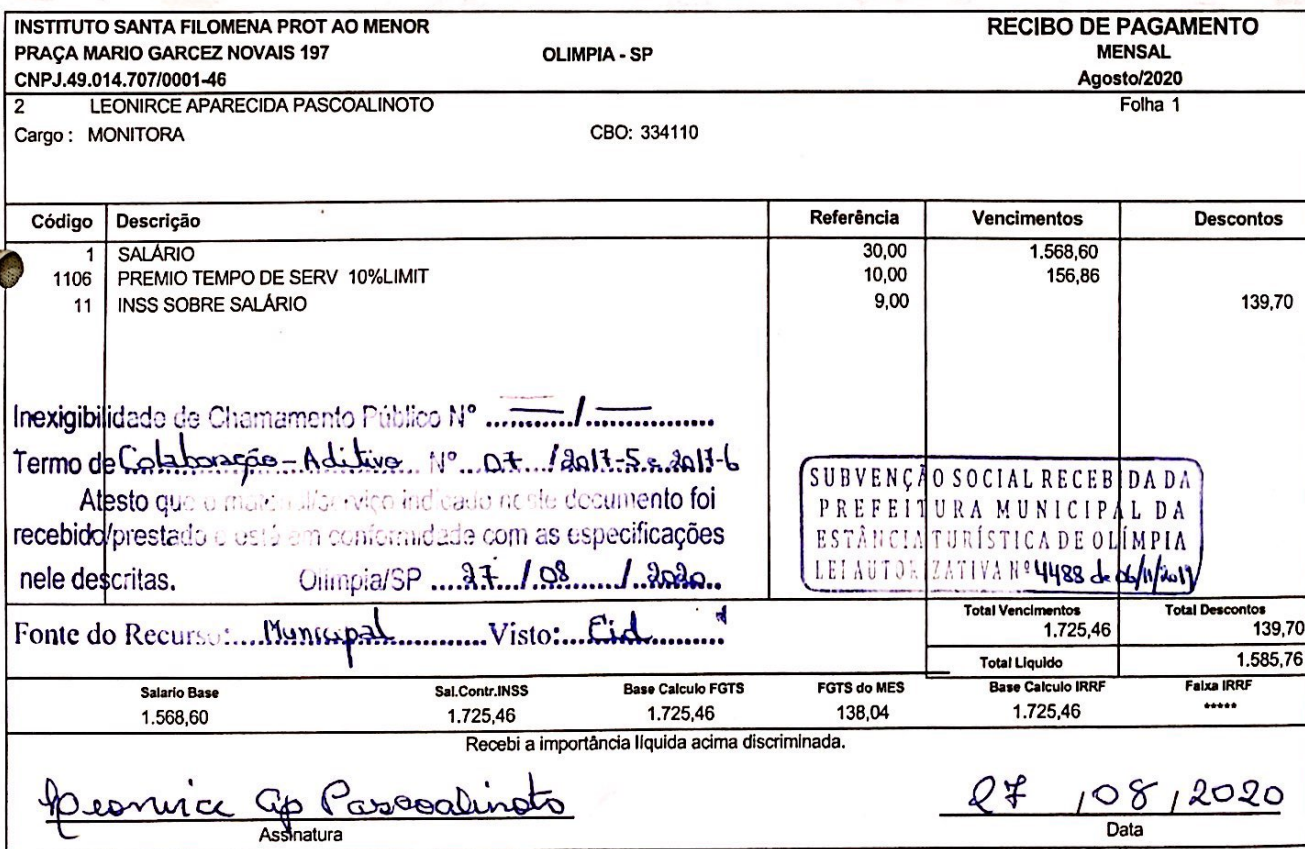 INSTITUTO SANTA FILOMENA PROT AO MENOR
RECIBO DE PAGAMENTO
PRAÇA MARIO GARCEZ NOVAIS 197 OLIMPIA - SP MENSAL
CNPJ.49.014.707/0001-46 Agosto/2020
2 LEONIRCE APARECIDA PASCOALINOTO Folha 1
Cargo : MONITORA CBO: 334110
Código Descrição Referência Vencimentos Descontos
1 SALÁRIO 30,00 1.568,60
1106 PREMIO TEMPO DE SERV 10%LIMIT 10,00 156,86
11 INSS SOBRE SALÁRIO 9,00 139,70
Inexigibilidade de Chamamento Público Nº ........../..................
Termo de Colaboração - Aditivo Nº 07 /2017-5 e 2017-6
Atesto que o material/serviço indicado neste documento foi
recebido/prestado e está em conformidade com as especificações
nele descritas. Olimpia/SP 27 / 08 / 2020
SUBVENÇÃO SOCIAL RECEBIDA DA
PREFEITURA MUNICIPAL DA
ESTÂNCIA TURÍSTICA DE OLÍMPIA
LEI AUTORIZATIVA Nº 4488 de 06/11/2019
Fonte do Recurso: Municipal Visto: Cid
Total Vencimentos Total Descontos
1.725,46 139,70
Total Liquido 1.585,76
Salario Base Sal.Contr.INSS Base Calculo FGTS FGTS do MES Base Calculo IRRF Faixa IRRF
1.568,60 1.725,46 1.725,46 138,04 1.725,46 *****
Recebi a importância líquida acima discriminada.
Leonirce Ap Pascoalinoto 27 / 08 / 2020
Assinatura Data